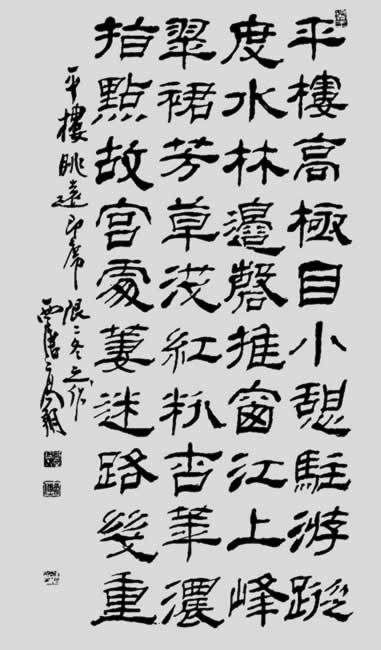 平樓高極目小憩駐游蹤
度水林邊磬推窗江上峰
翠裙芳草淺紅粉杏華濃
指點故宮處萋迷路幾重
平樓眺遠即席限二冬之作